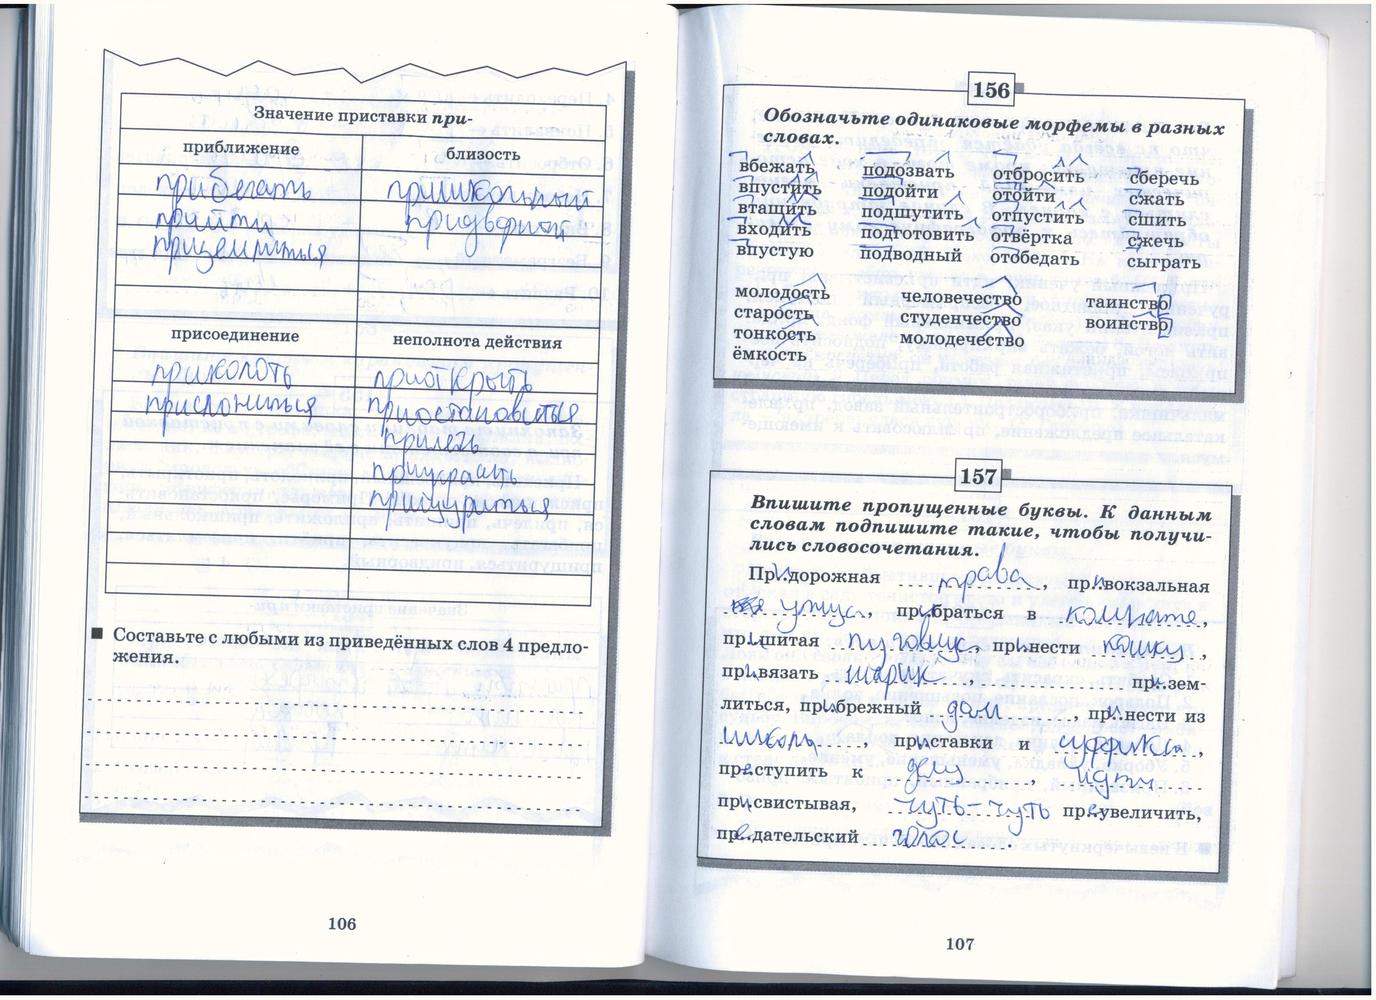 Значение приставки при-
приближение
близость
прибегать
пришкольный
прийти
придворной
приземлиться
присоединение
неполнота действия
приколоть
приоткрыть
прислониться
приостановиться
прилечь
приукрасить
прищуриться
Составьте с любыми из приведённых слов 4 предло-
жения.
106
156
Обозначьте одинаковые морфемы в разных
словах.
вбежать подозвать отбросить сберечь
впустить подойти отойти сжать
втащить подшутить отпустить сшить
входить подготовить отвёртка сжечь
впустую подводный отобедать сыграть
молодость человечество таинство
старость студенчество воинство
тонкость молодечество
ёмкость
157
Впишите пропущенные буквы. К данным
словам подпишите такие, чтобы получи-
лись словосочетания.
Придорожная трава, привокзальная
улица, прибраться в комнате,
пришитая пуговица, принести кошку,
привязать шарик, призем-
литься, прибрежный дом, принести из
школы, приставки и суффикса,
преступить к делу, идти
присвистывая, чуть-чуть преувеличить,
предательский голос.
107